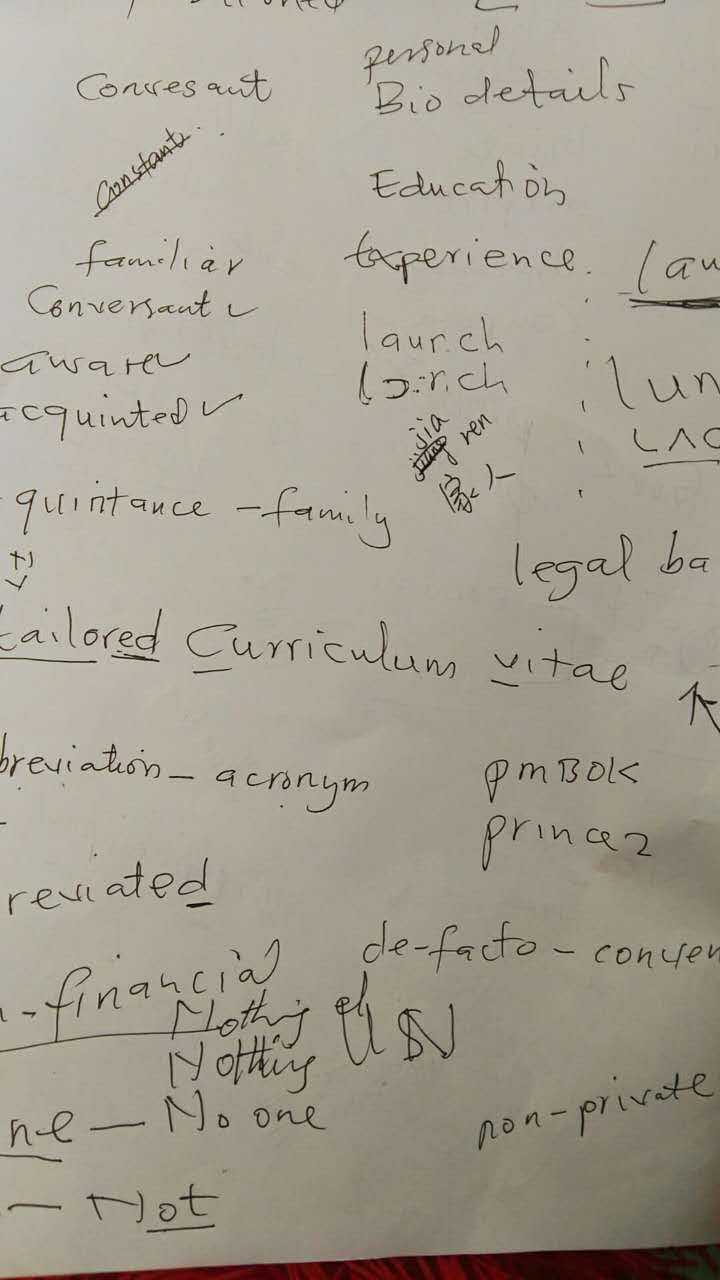 personal
Convesant Bio details
Constant
Education
familiar Experience
Conversant
aware laurch
acquinted
jia ren
家人
quintance - family
legal ba
tailored Curriculum vitae
breviation - acronym PMBOK
prince2
reviated
de-facto - conven
-financial
Nothing
Nothing
ne - No one
non-private
- Not